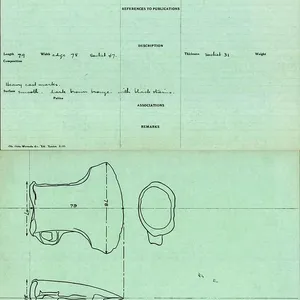 REFERENCES TO PUBLICATIONS
DESCRIPTION
Length 79 Width edge 78 socket 47. Thickness socket 31. Weight
Composition
Heavy cast marks.
Surface smooth. Dark brown bronze with black stains.
Patina
ASSOCIATIONS
REMARKS
79
78
47